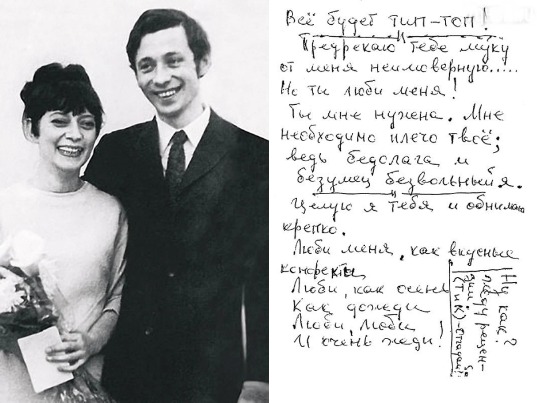 Всё будет тип-топ!
Предрекаю тебе муку
от меня неимоверную.....
Но ты люби меня!
Ты мне нужена. Мне
необходимо плечо твоё;
ведь бедолага и
безумец безвольный я.
Целую я тебя и обнимаю
крепко.
Люби меня, как вкусные
конфекты,
Люби, как осень
Как дожди
Люби, люби !
И очень жди!
Ну как?
Жду рецен-
зии!
(ТиК)-